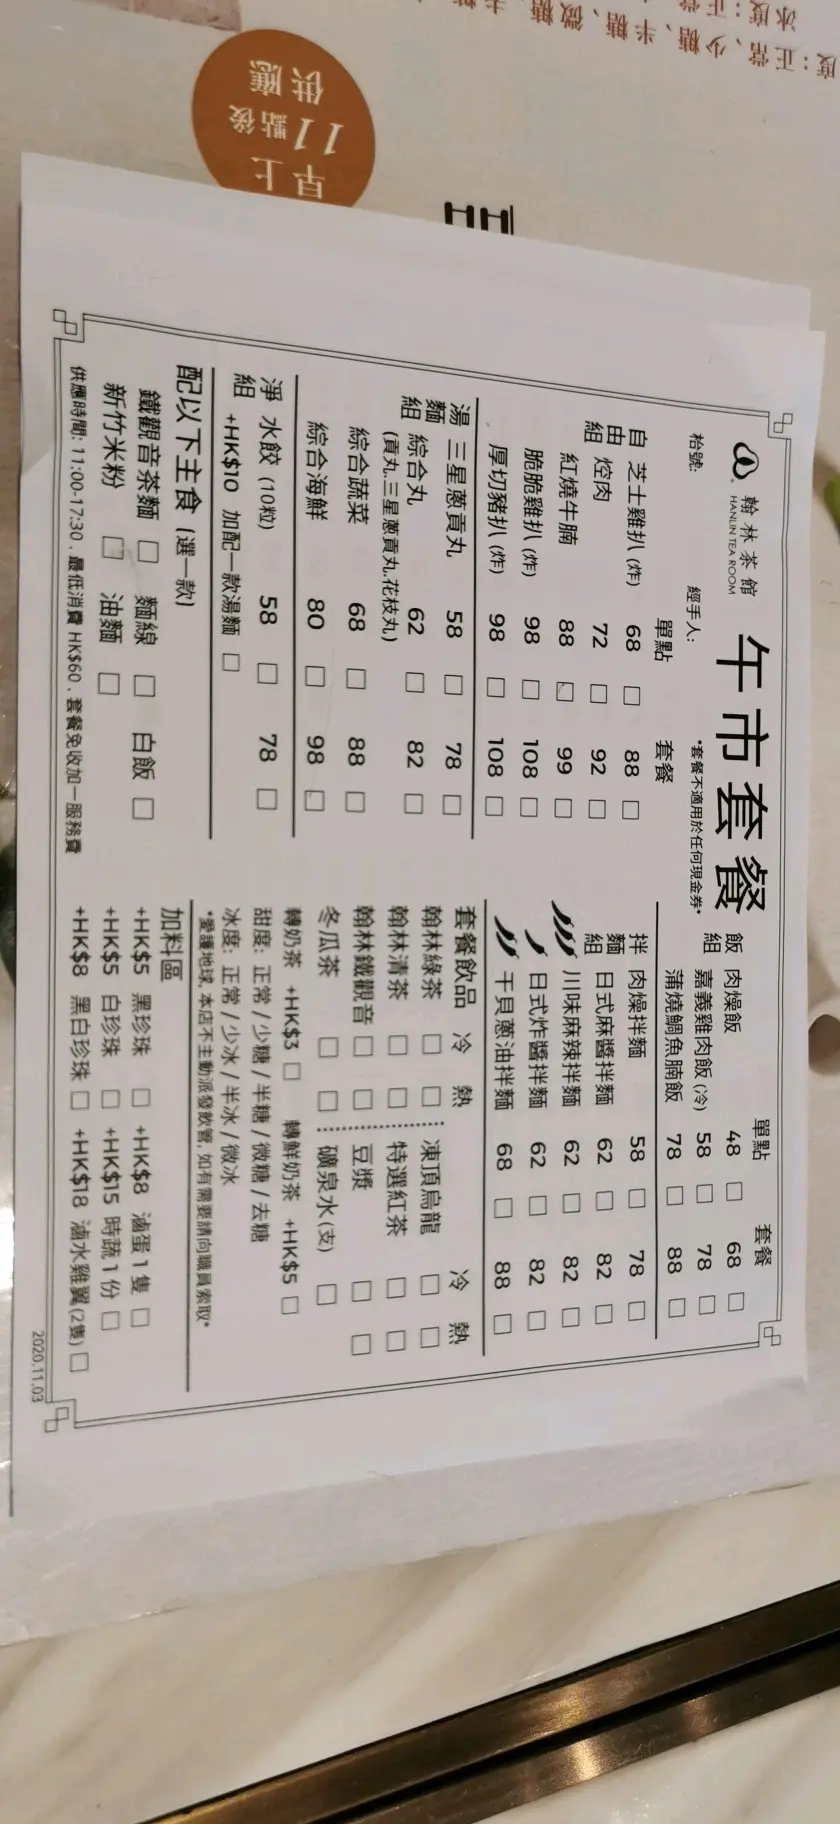 冰度：正常
度：正常、少糖、半糖、微糖、去糖
早上
11點後
供應
翰林茶館
HANLIN TEA ROOM
午市套餐
枱號:
經手人:
*套餐不適用於任何現金券*
單點 套餐
自由組
芝士雞扒 (炸) 68 □ 88 □
焢肉 72 □ 92 □
紅燒牛腩 88 □ 99 □
脆脆雞扒 (炸) 98 □ 108 □
厚切豬扒 (炸) 98 □ 108 □
湯麵組
三星蔥貢丸 58 □ 78 □
綜合丸 62 □ 82 □
(貢丸.三星蔥貢丸.花枝丸)
綜合蔬菜 68 □ 88 □
綜合海鮮 80 □ 98 □
淨組
水餃 (10粒) 58 □ 78 □
+HK$10 加配一款湯麵 □
配以下主食 (選一款)
鐵觀音茶麵 □ 麵線 □ 白飯 □
新竹米粉 □ 油麵 □
供應時間: 11:00-17:30 . 最低消費 HK$60 . 套餐免收加一服務費
單點 套餐
飯組
肉燥飯 48 □ 68 □
嘉義雞肉飯 (冷) 58 □ 78 □
蒲燒鯛魚腩飯 78 □ 88 □
拌麵組
肉燥拌麵 58 □ 78 □
日式麻醬拌麵 62 □ 82 □
川味麻辣拌麵 62 □ 82 □
日式炸醬拌麵 62 □ 82 □
干貝蔥油拌麵 68 □ 88 □
套餐飲品 冷 熱 冷 熱
翰林綠茶 □ □ 凍頂烏龍 □ □
翰林清茶 □ □ 特選紅茶 □ □
翰林鐵觀音 □ □ 豆漿 □ □
冬瓜茶 □ □ 礦泉水 (支) □
轉奶茶 +HK$3 □ 轉鮮奶茶 +HK$5 □
甜度: 正常 / 少糖 / 半糖 / 微糖 / 去糖
冰度: 正常 / 少冰 / 半冰 / 微冰
*愛護地球, 本店不主動派發飲管, 如有需要請向職員索取*
加料區
+HK$5 黑珍珠 □ +HK$8 滷蛋 1 隻 □
+HK$5 白珍珠 □ +HK$15 時蔬 1 份 □
+HK$8 黑白珍珠 □ +HK$18 滷水雞翼 (2隻) □
2020.11.03